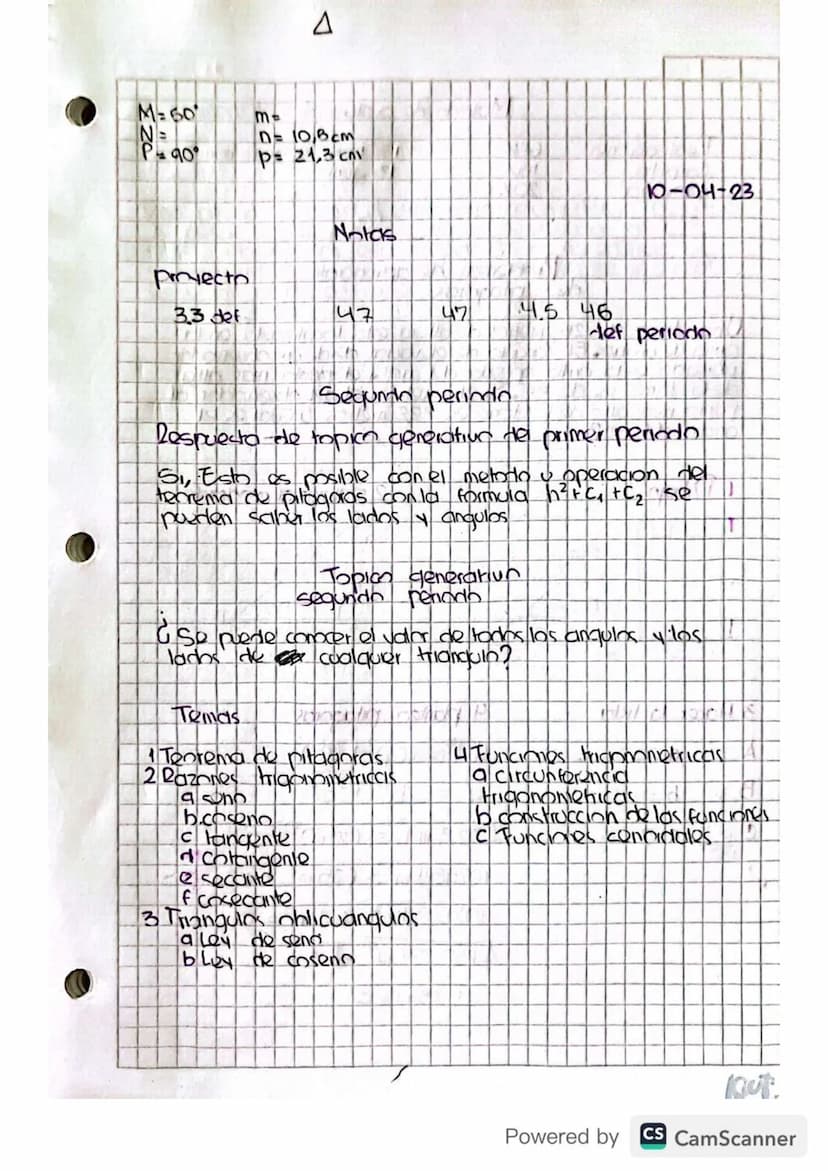 M= 60°
m=
N=
n= 10,8 cm
P= 90°
p= 21,3 cm
10-04-23
Notas
proyecto
3.3 def
47
47
4.5
46
def periodo
Segundo periodo
Respuesta de topico generativo del primer periodo
Si, Esto es posible con el metodo y operacion del
teorema de pitagoras con la formula h²+C₁+C₂ se
pueden saber los lados y angulos
Topico generativo
segundo periodo
¿Se puede conocer el valor de todos los angulos y los
lados de cualquer triangulo?
Temas
1 Teorema de pitagoras
2 Razones trigonometricas
a seno
b. coseno
c tangente
d cotangente
e secante
f cosecante
3 Triangulos oblicuangulos
a Ley de seno
b Ley de coseno
4 Funciones trigonometricas
a circunferencia
trigonometricas
b construccion de las funciones
c Funciones
Powered by CS CamScanner